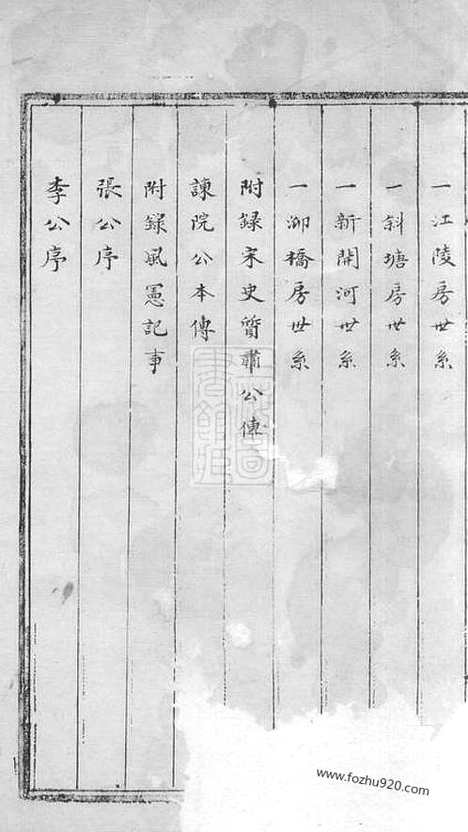 一江陵房世系
一斜塘房世系
一新開河世系
一泖橋房世系
附録宋史質肅公傳
諫院公本傳
附録風憲記事
張公序
李公序
www.fozhu920.com